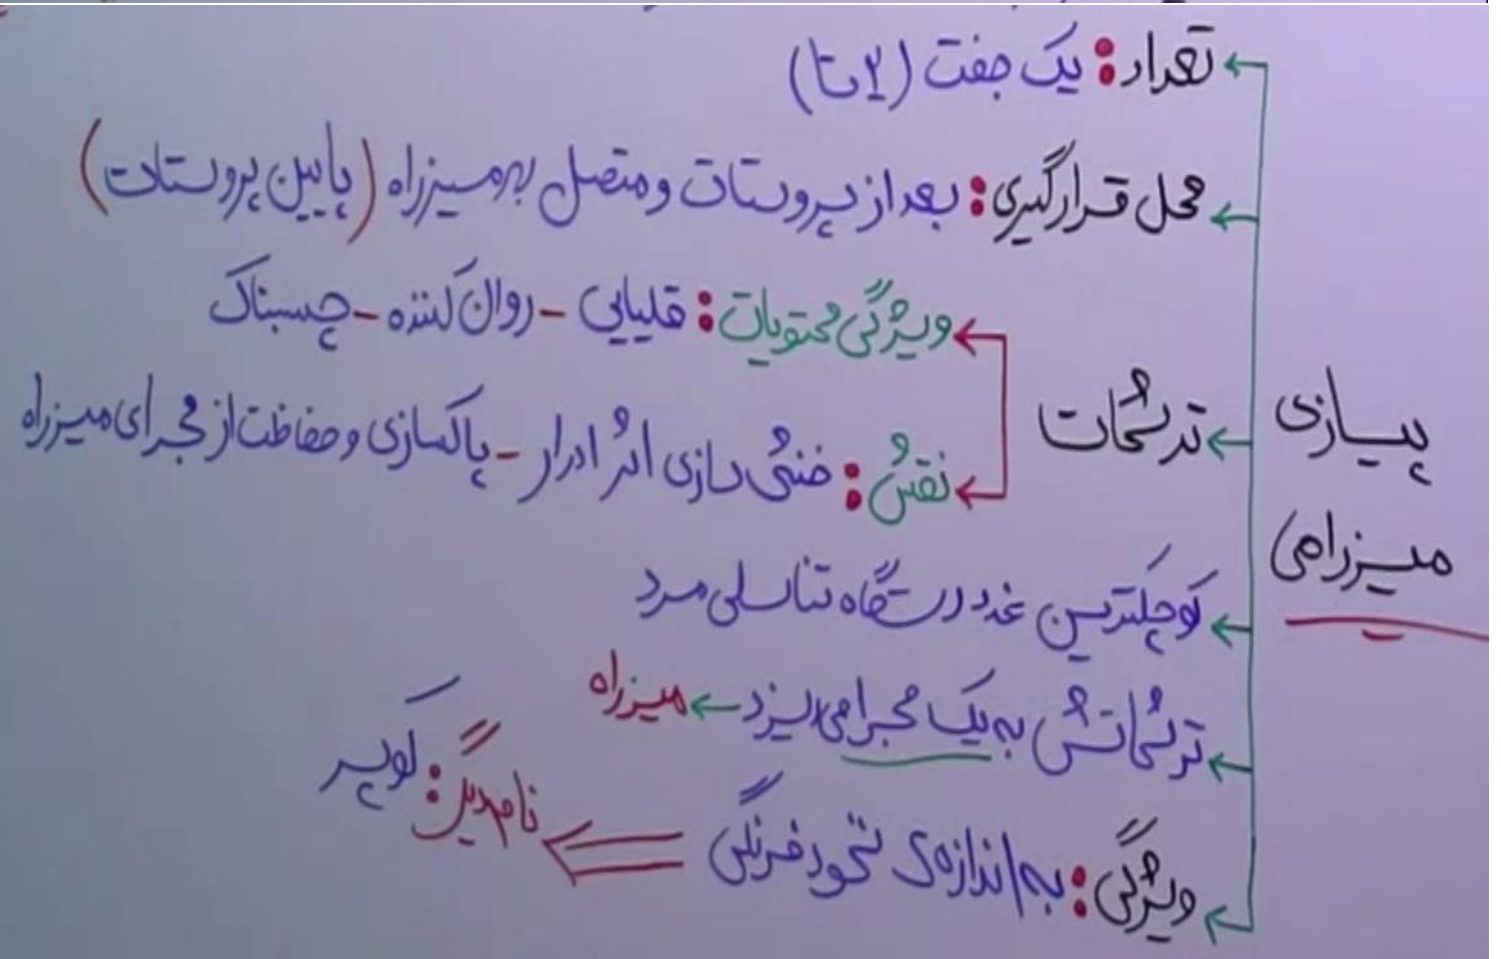 تعداد: یک جفت (۲ تا)
محل قرارگیری: بعد از پروستات و متصل به میزراه (پایین پروستات)
ویژگی محتویات: قلیایی - روان‌کننده - چسبناک
ترشحات
نقش: خنثی سازی اثر ادرار - پاکسازی و حفاظت از مجرای میزراه
پیازی
میزراهی
کوچکترین غدد دستگاه تناسلی مرد
ترشحاتش به یک مجرا می‌ریزد ← میزراه
ویژگی: به اندازه‌ی نخود فرنگی
نام دیگر: کوپر